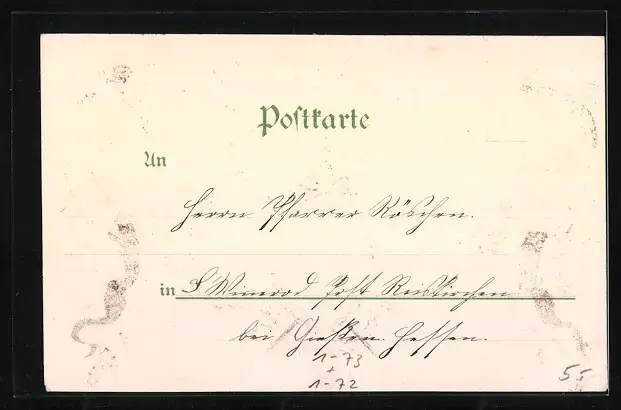 Postkarte
An
Herrn Pfarrer Röschen.
in Winnerod Post Reiskirchen
bei Gießen. Hessen.
1-73
+
1-72
55